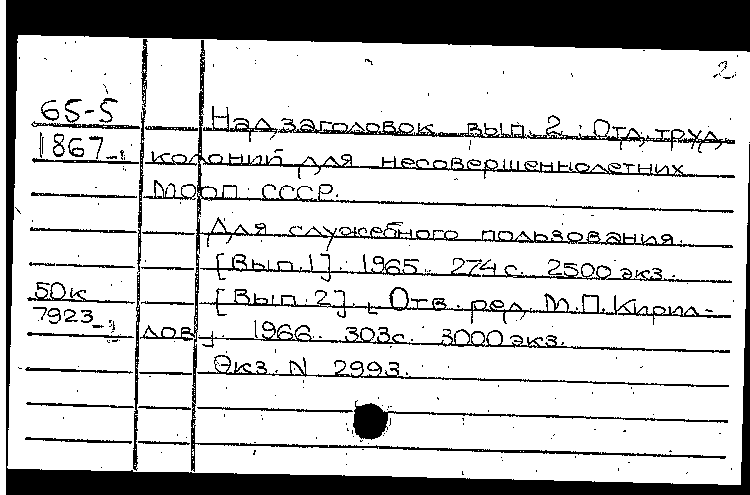 2
65-5 Над заголовок вып. 2: Отд. труд.
1867-1 колоний для несовершеннолетних
МООП СССР.
Для служебного пользования.
[Вып. 1]. 1965. 274 с. 2500 экз.
50к [Вып. 2]. Отв. ред. М.П. Кирил-
7923 лов. 1966. 303с. 3000 экз.
Экз. N 2993.